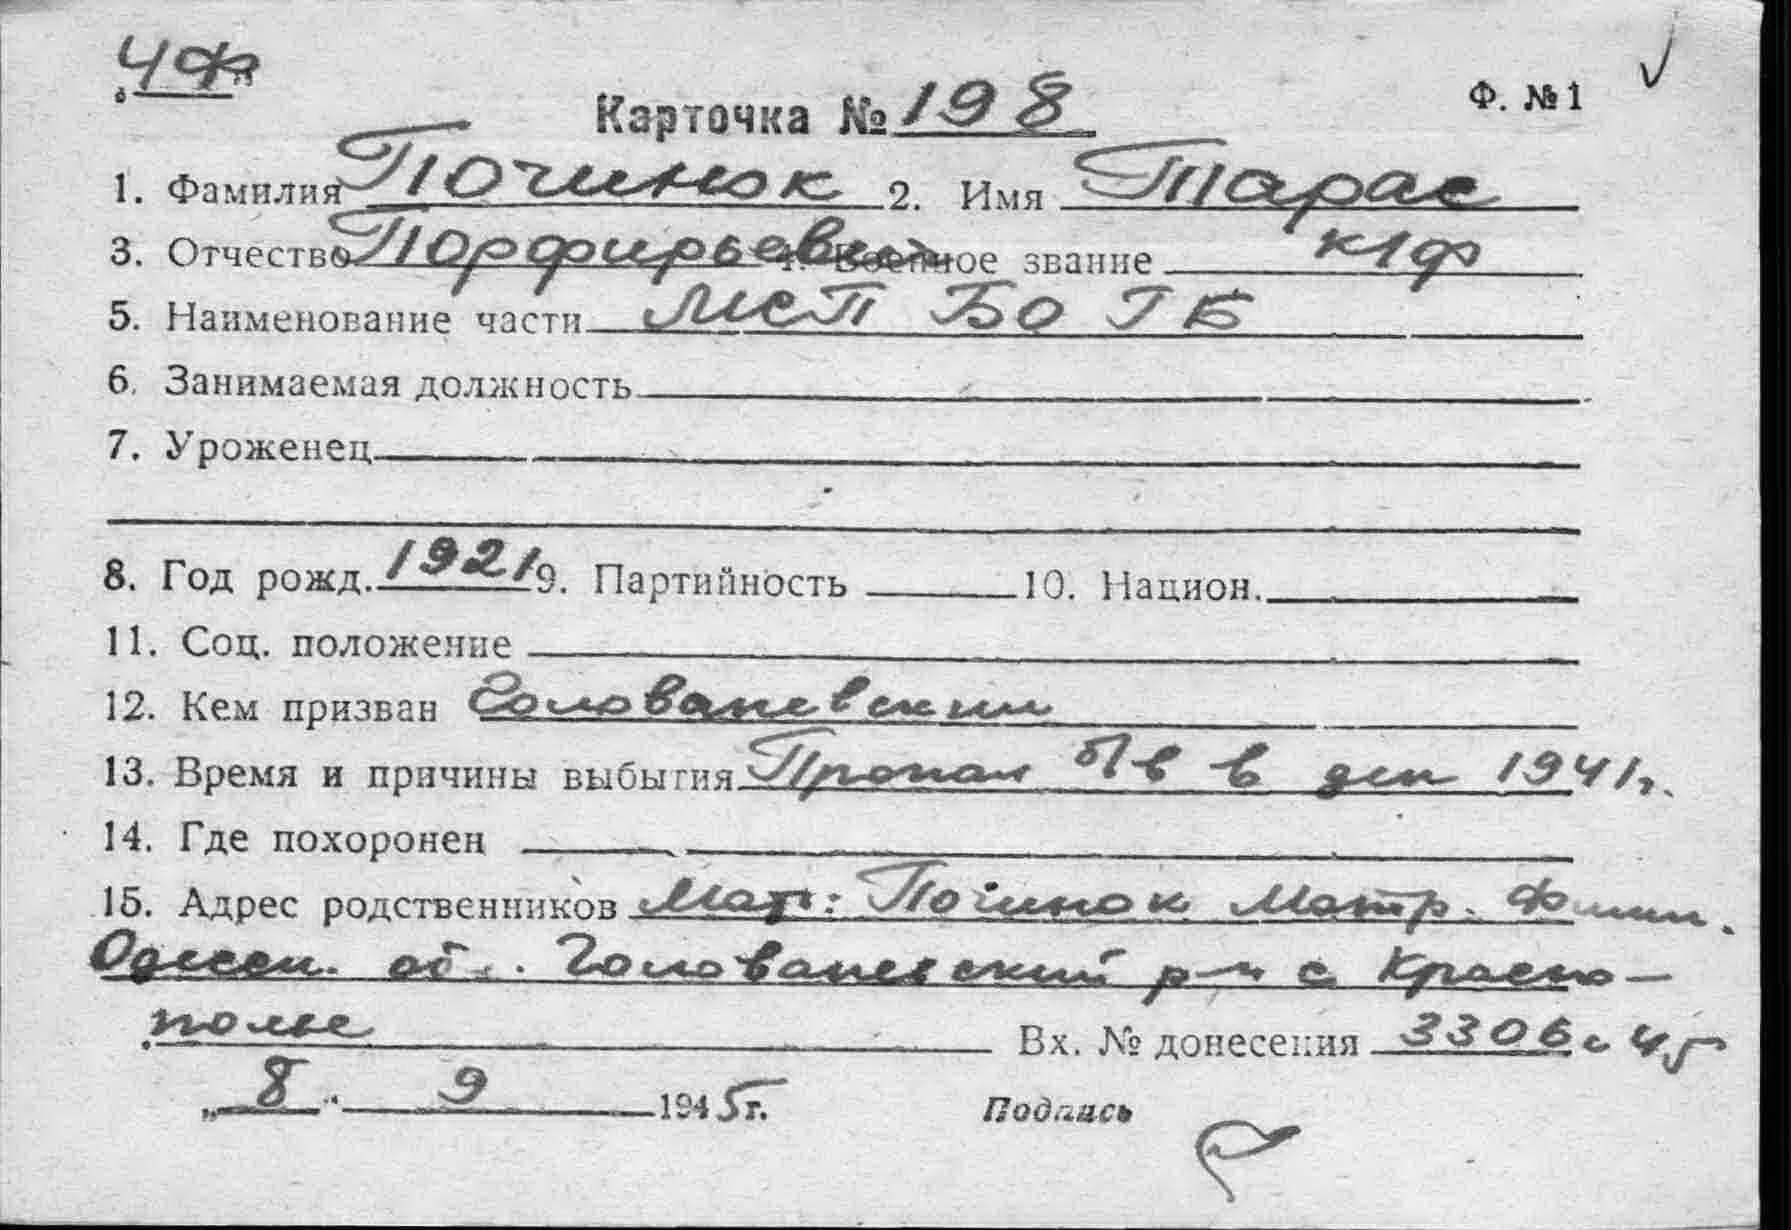 ЧФ
Карточка № 198 Ф. №1
1. Фамилия Починок 2. Имя Тарас
3. Отчество Порфирьевич 4. Военное звание к/ф
5. Наименование части МСП БО ГБ
6. Занимаемая должность
7. Уроженец
8. Год рожд. 1921 9. Партийность 10. Национ.
11. Соц. положение
12. Кем призван Голованевским
13. Время и причины выбытия Пропал б/в в дек 1941г.
14. Где похоронен
15. Адрес родственников Мать: Починок Матр.
Одесск. об. Голованевский р-н с Красно-
полье Вх. № донесения 3306с 45
„8" 9 1945г. Подпись